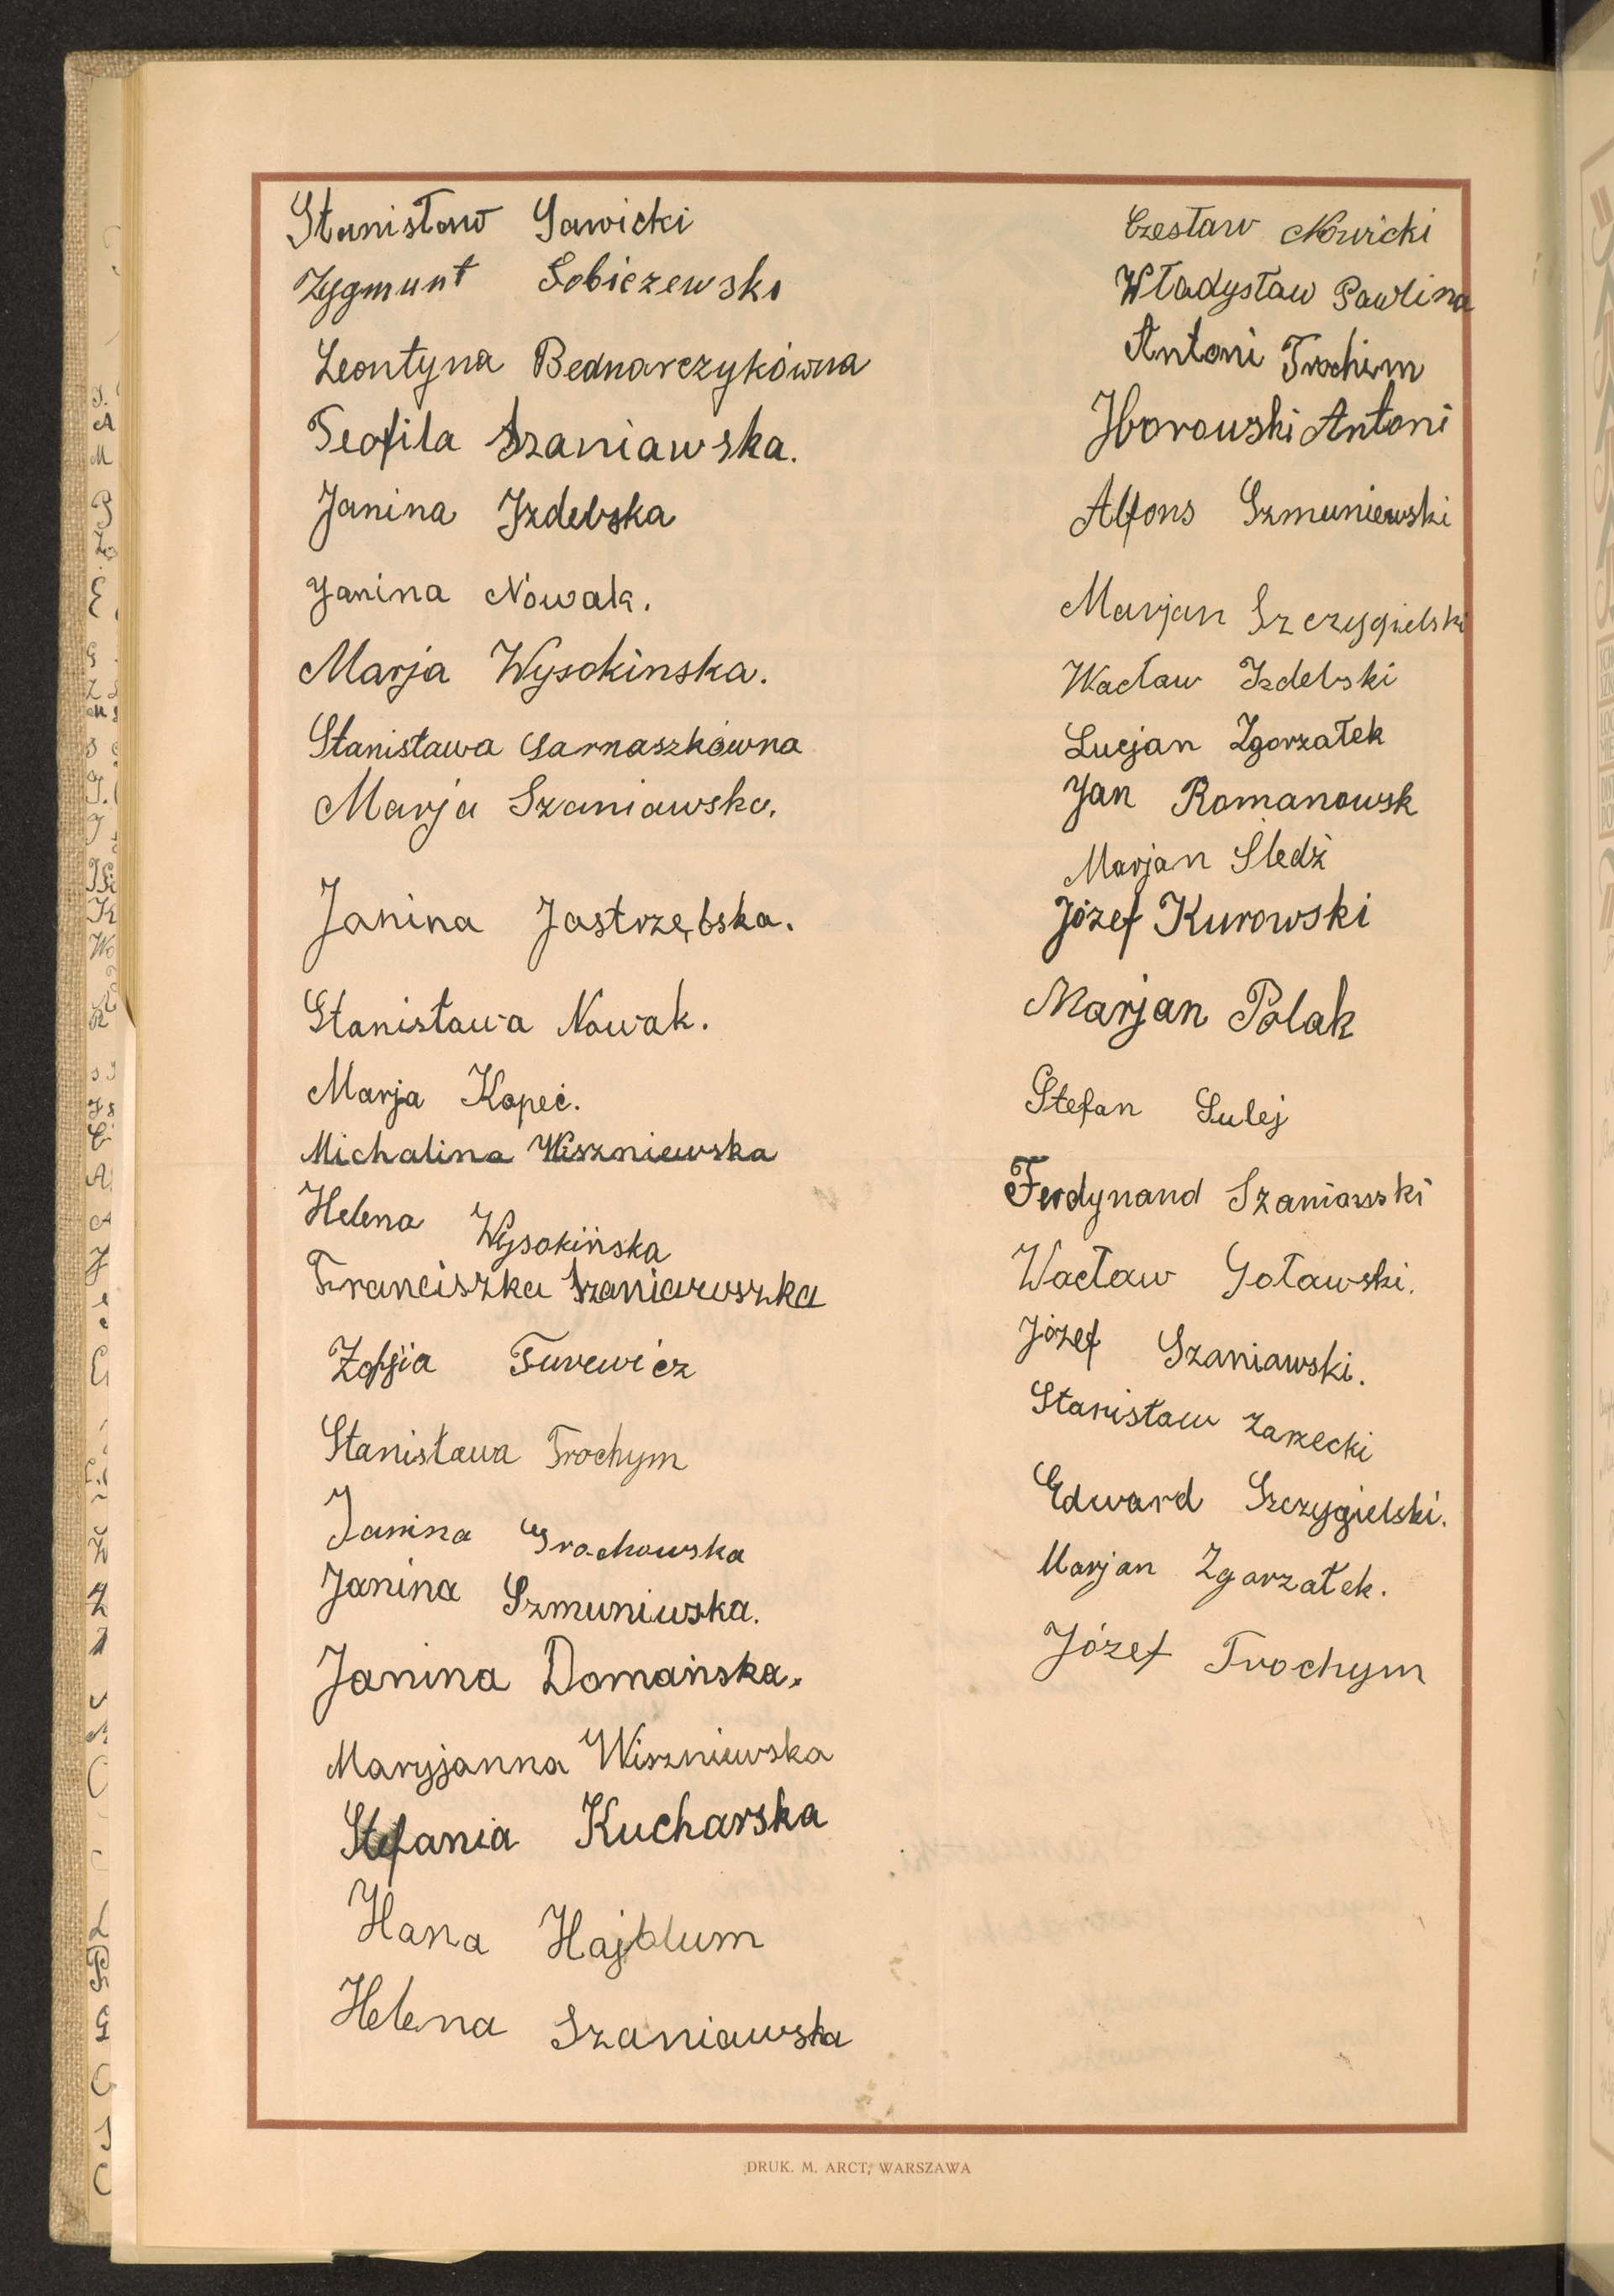 Stanisław Sawicki
Zygmunt Sobiczewski
Leontyna Bednarczykówna
Teofila Szaniawska.
Janina Izdebska
Janina Nowak.
Marja Wysokinska.
Stanisława Garnaszkówna
Marja Szaniawska.
Janina Jastrzębska.
Stanisława Nowak.
Marja Kopeć.
Michalina Wiszniewska
Helena Wysokińska
Franciszka Szaniawszka
Zofija Turewicz
Stanisława Trochym
Janina Grochowska
Janina Szmuniewska.
Janina Domańska.
Maryjanna Wiszniewska
Stefania Kucharska
Hana Hajblum
Helena Szaniawska
Czesław Nowicki
Władysław Pawlina
Antoni Trochim
Antoni
Alfons Szmuniewski
Marjan Szczygielski
Wacław Izdebski
Lucjan Zgorzałek
Jan Romanowsk
Marjan Śledź
Józef Kurowski
Marjan Polak
Stefan Sulej
Ferdynand Szaniawski
Wacław Goławski.
Józef Szaniawski.
Stanisław Zarzecki
Edward Szczygielski.
Marjan Zgorzałek.
Józef Trochym
DRUK. M. ARCT, WARSZAWA